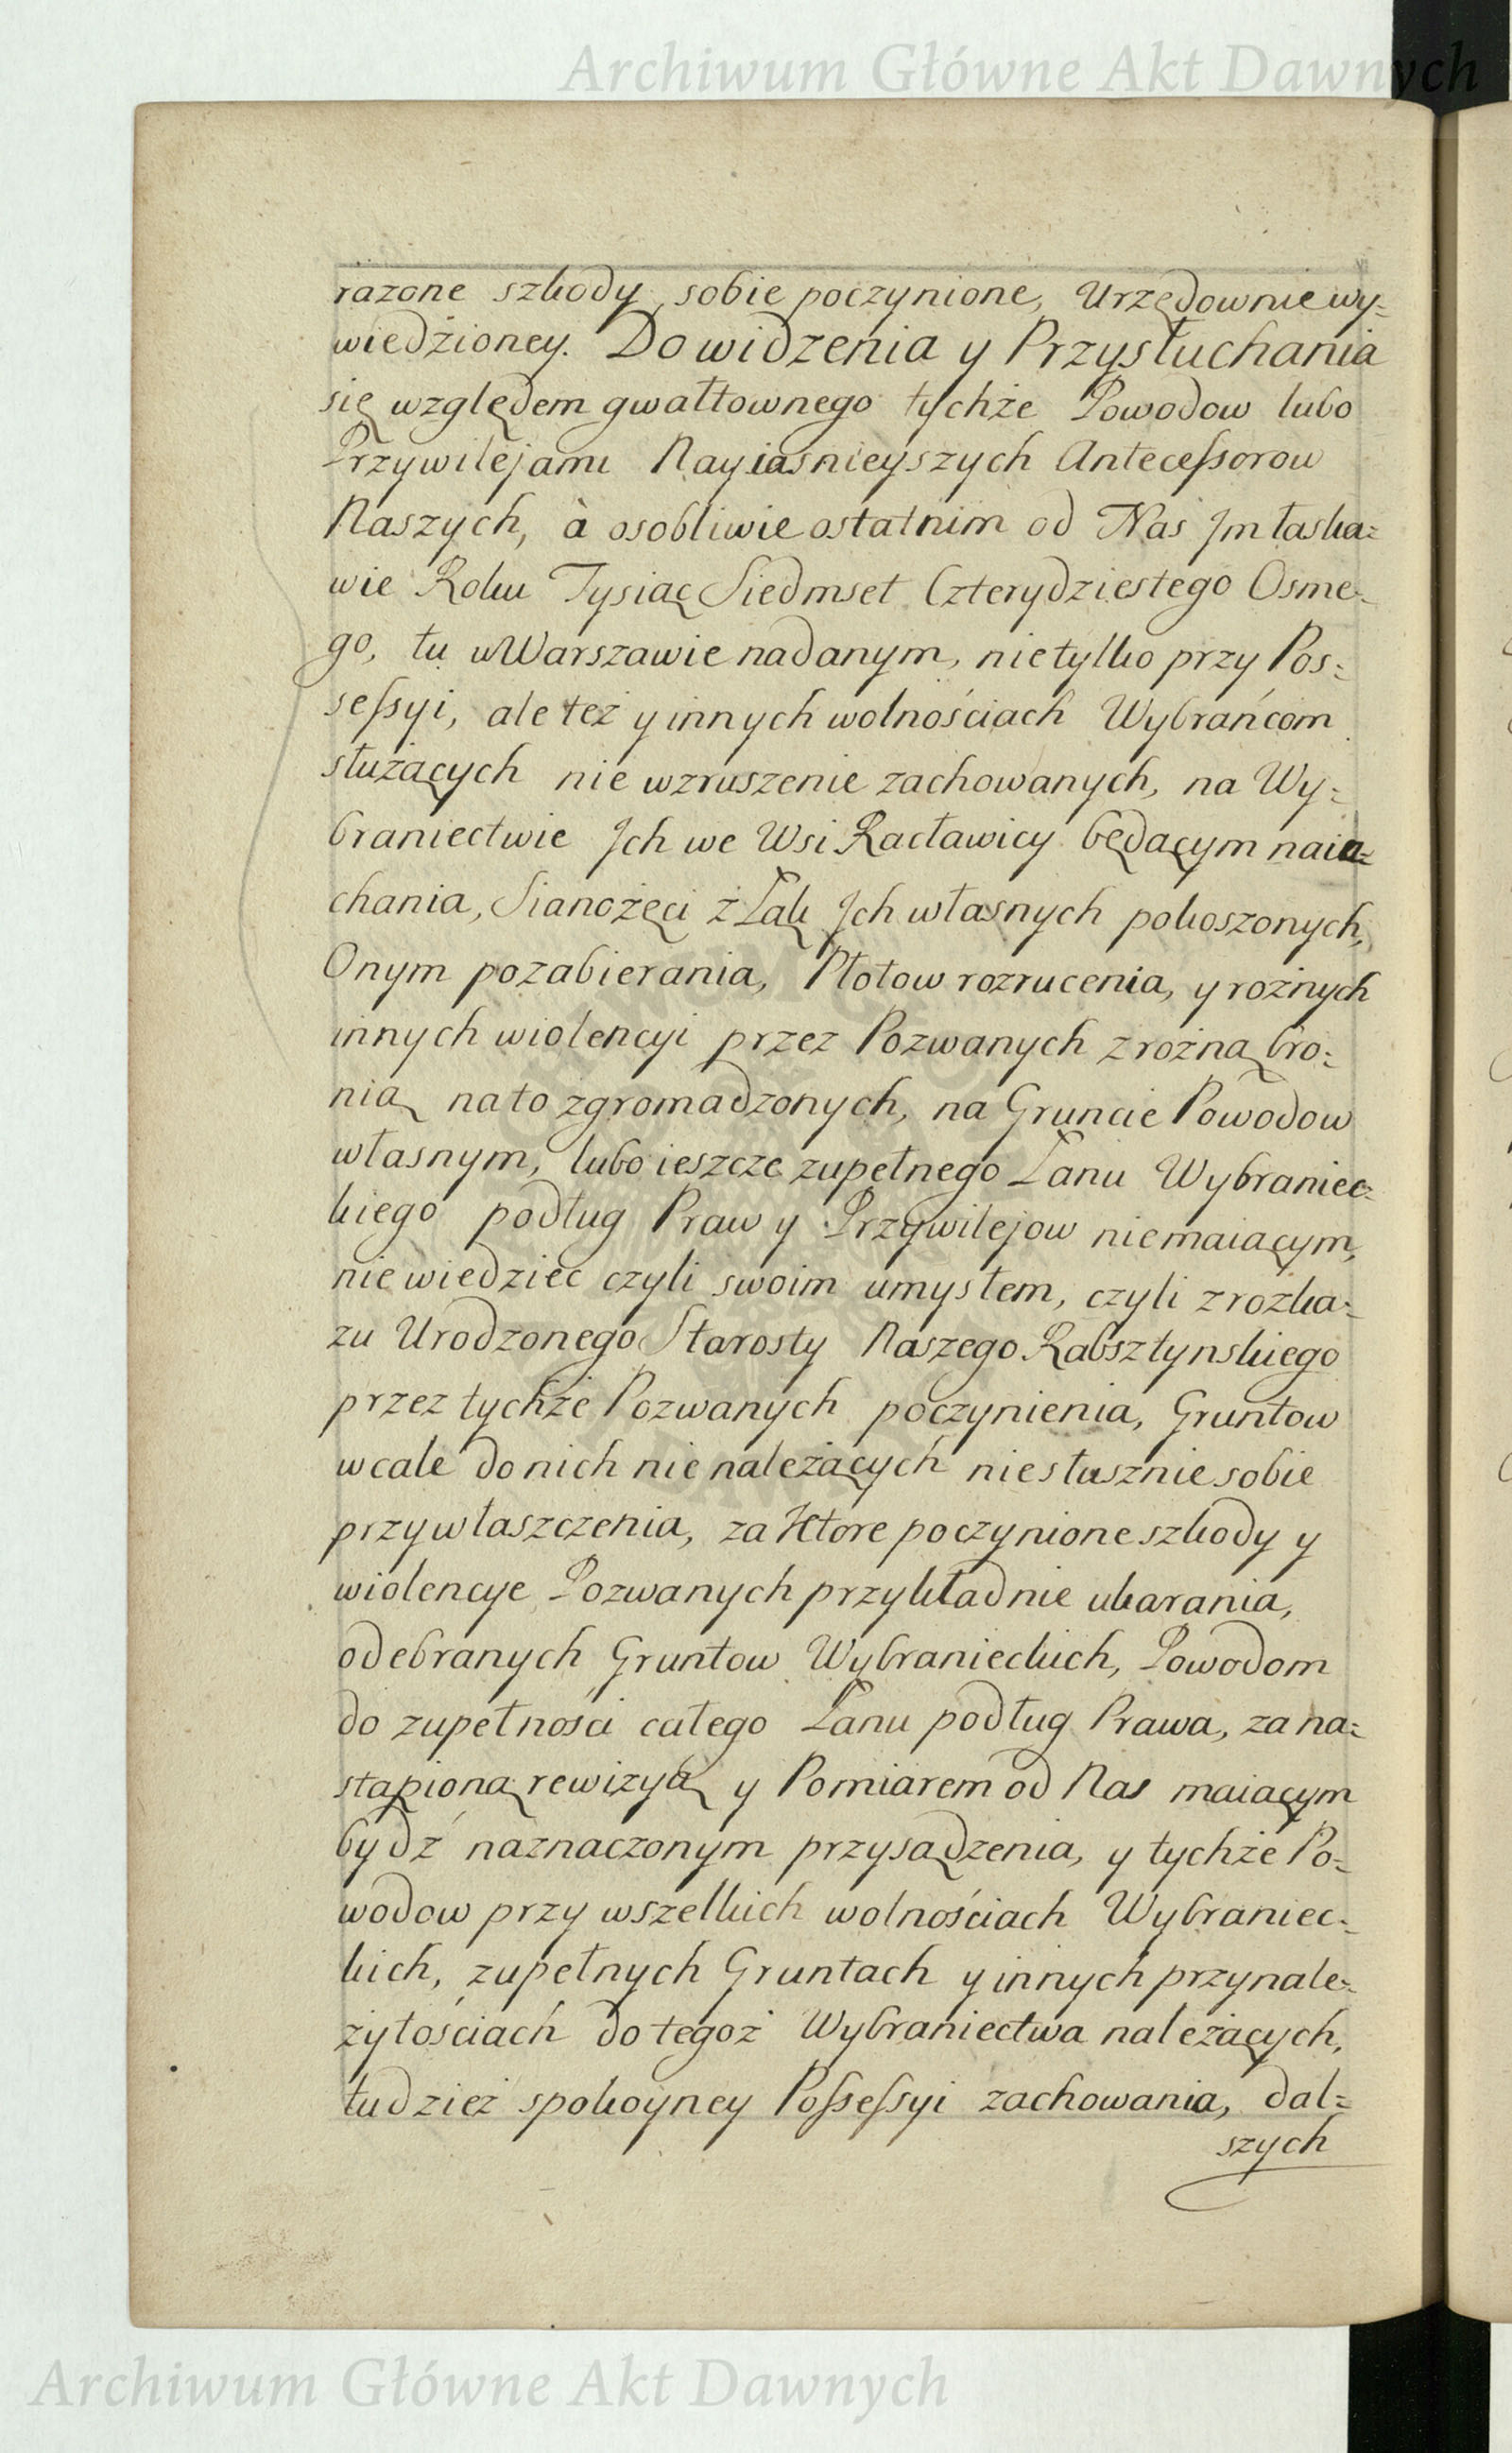 Archiwum Główne Akt Dawnych
razone szkody sobie poczynione, Urzędownie wy=
wiedzioney. Do widzenia y Przysłuchania
się względem gwałtownego tychże Powodow lubo
Przywilejami Nayiasnieyszych Antecessorow
Naszych, à osobliwie ostatnim od Nas Jm łaska=
wie Roku Tysiąc Siedmset Czterydziestego Osme=
go, tu w Warszawie nadanym, nie tylko przy Pos=
sessyi, ale też y innych wolnościach Wybrańcom
służących nie wzruszenie zachowanych, na Wy=
braniectwie Jch we Wsi Racławicy będącym naia=
chania, Sianożęci z Łąk Jch własnych pokoszonych,
Onym pozabierania, Płotow rozrucenia, y rożnych
innych wiolencyi przez Pozwanych z rożną bro=
nią na to zgromadzonych, na Gruncie Powodow
własnym, lubo ieszcze zupełnego Łanu Wybraniec=
kiego podług Praw y Przywilejow niemaiącym,
nie wiedzieć czyli swoim umysłem, czyli z rozka=
zu Urodzonego Starosty Naszego Rabsztynskiego
przez tychże Pozwanych poczynienia, Gruntow
wcale do nich nie należących niesłusznie sobie
przywłaszczenia, za Ktore poczynione szkody y
wiolencye Pozwanych przykładnie ukarania,
odebranych Gruntow Wybranieckich, Powodom
do zupełności całego Łanu podług Prawa, za na=
stąpioną rewizyą y Pomiarem od Nas maiącym
bydź naznaczonym przysądzenia, y tychże Po=
wodow przy wszelkich wolnościach Wybraniec=
kich, zupełnych Gruntach y innych przynale=
żytościach do tegoż Wybraniectwa należących,
tudzież spokoyney Possessyi zachowania, dal=
szych
Archiwum Główne Akt Dawnych